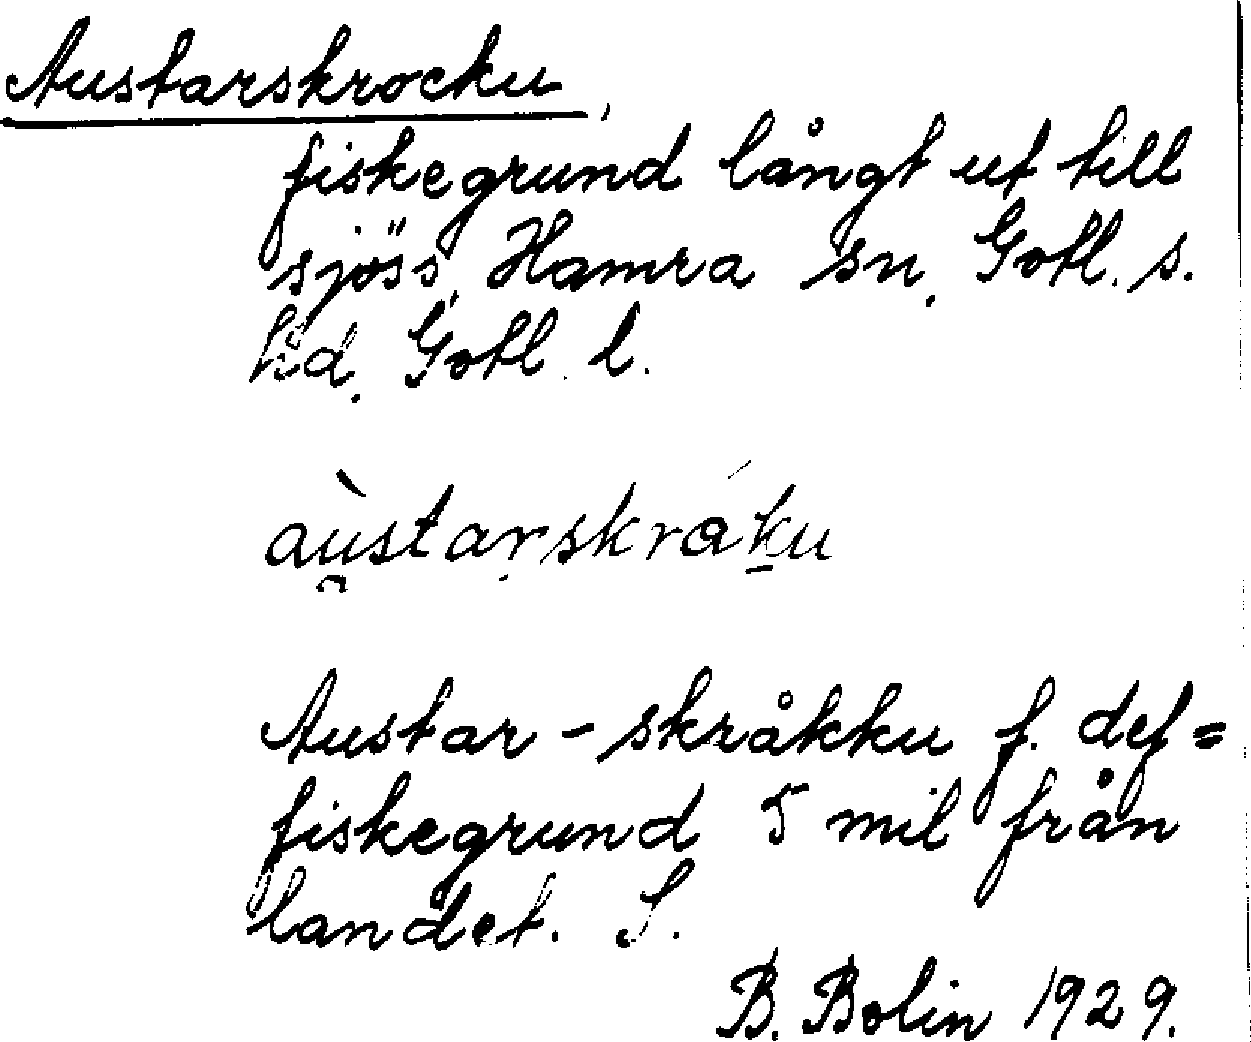 Austarskrocku,
fiskegrund långt ut till
sjöss, Hamra sn, Gotl. s.
hd, Gotl. l.
au̯starskráku
Austar-skråkku f. def=
fiskegrund 5 mil från
landet. S.
B. Bolin 1929.